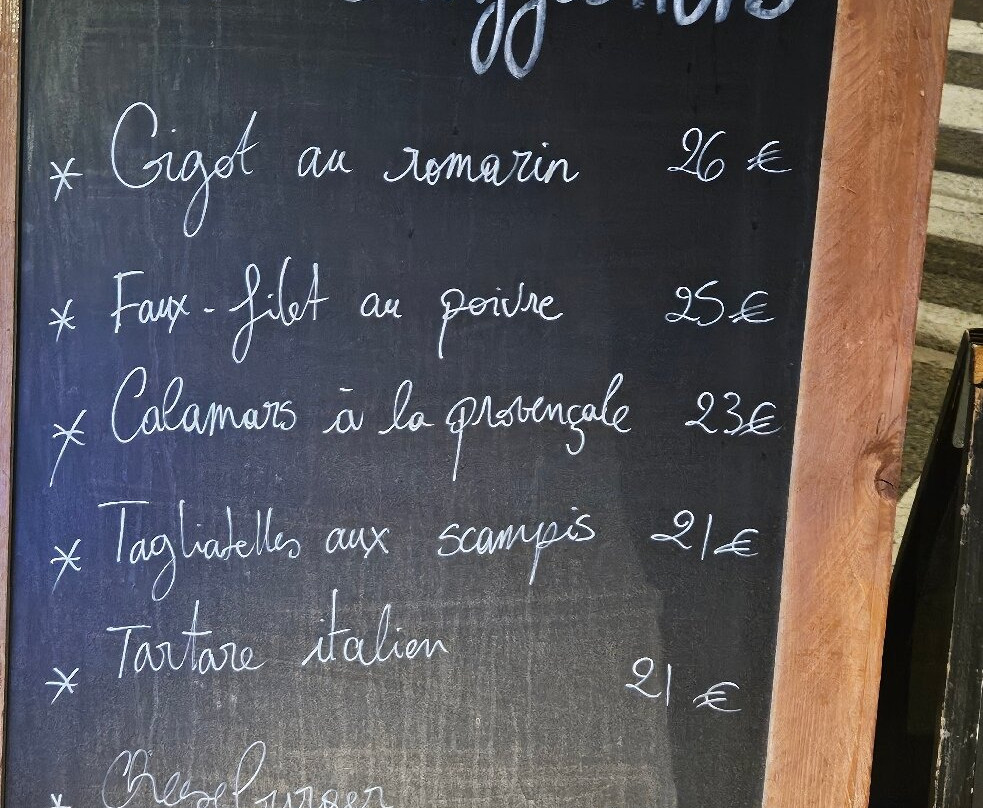 Suggestions
* Gigot au romarin 26 €
* Faux-filet au poivre 25 €
* Calamars à la provençale 23 €
* Tagliatelles aux scampis 21 €
* Tartare italien 21 €
* Cheeseburger